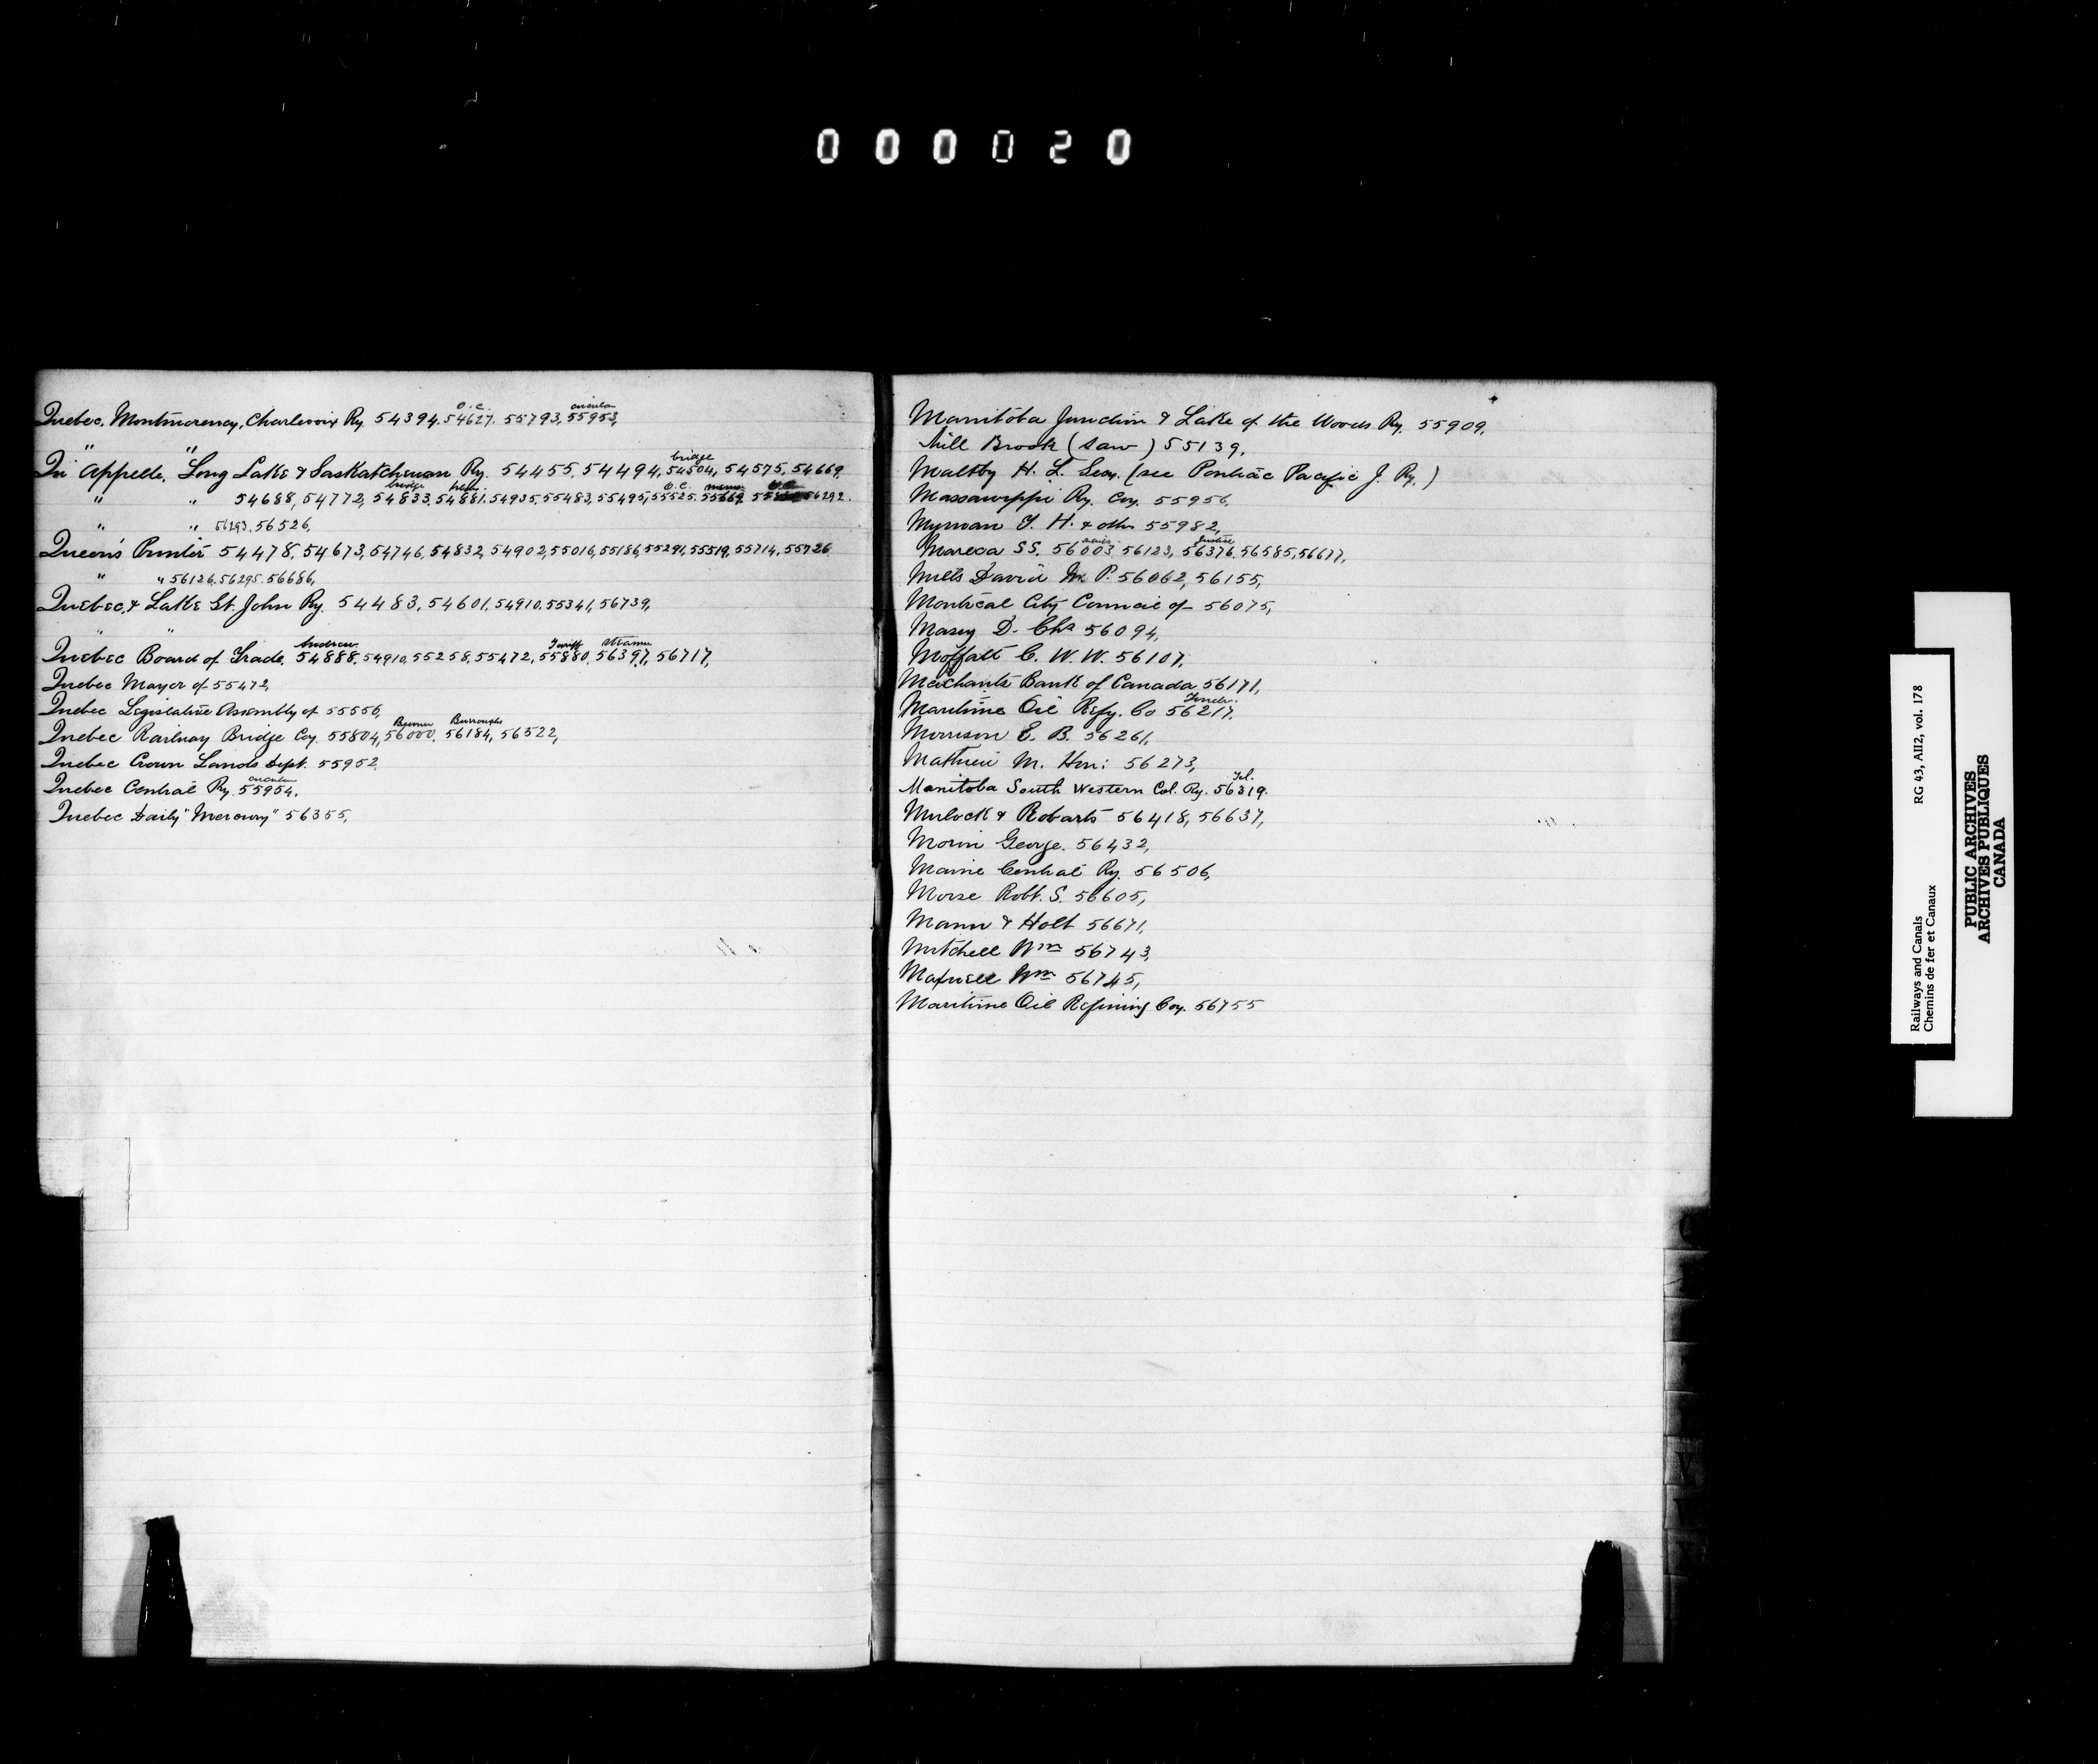 000020
Quebec, Montmorency, Charlevoix Ry. 54394, 54627, 55793, 55953,
O.C. circular
" "
Qu'Appelle, Long Lake & Saskatchewan Ry. 54455, 54494, 54504, 54575, 54669,
bridge
" " 54688, 54772, 54833, 54881, 54935, 55483, 55495, 55525, 55669, 56292.
bridge O.C. memo O.C.
" " 56293, 56526,
Queen's Printer 54478, 54673, 54746, 54832, 54902, 55016, 55186, 55291, 55519, 55714, 55726
" " 56126, 56295, 56686,
Quebec & Lake St. John Ry. 54483, 54601, 54910, 55341, 56739,
" "
Quebec Board of Trade, 54888, 54910, 55258, 55472, 55880, 56397, 56717,
Andrew Tariff Steamer
Quebec Mayor of 55472,
Quebec Legislative Assembly of 55556,
Quebec Railway Bridge Coy. 55804, 56000, 56184, 56522,
Burroughs
Quebec Crown Lands Dept. 55952.
Quebec Central Ry. 55954.
circular
Quebec Daily "Mercury" 56355,
Manitoba Junction & Lake of the Woods Ry. 55909,
Mill Brook (Saw) 55139,
Maltby H. L. Secy. (see Pontiac Pacific J. Ry.)
Massawippi Ry. Coy. 55956,
Myrwan T. H. & othrs 55982,
Mareca SS. 56003, 56123, 56376, 56585, 56677,
Justice
Mills David M. P. 56062, 56155,
Montreal City Council of 56075,
Masey D. Chs 56094,
Moffatt C. W. W. 56107,
Merchants Bank of Canada 56171,
Maritime Oil Refy. Co 56217,
Tender.
Morrison E. B. 56261,
Mathieu M. Hon: 56273,
Manitoba South Western Col. Ry. 56319.
Tel.
Mulock & Robarts 56418, 56637,
Morin George. 56432,
Maine Central Ry. 56506,
Morse Robt. S. 56605,
Mann & Holt 56671,
Mitchell Wm 56743,
Maxwell Wm 56745,
Maritime Oil Refining Coy. 56755
Railways and Canals RG 43, AII2, vol. 178
Chemins de fer et Canaux
PUBLIC ARCHIVES
ARCHIVES PUBLIQUES
CANADA